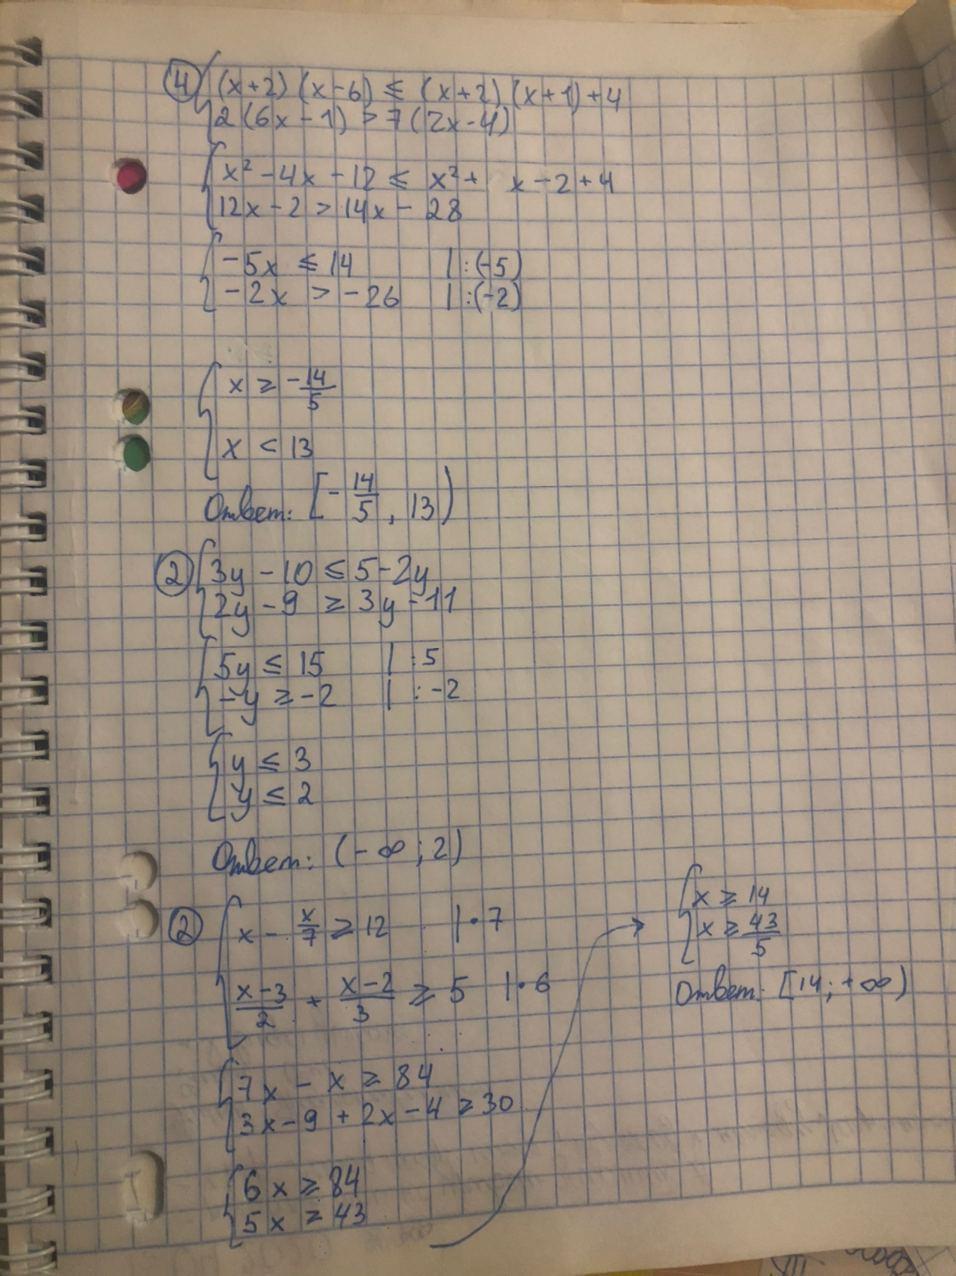 ④ { (x+2)(x-6) ≤ (x+2)(x+1)+4
2(6x-1) > 7(2x-4)
{ x² - 4x - 12 ≤ x² + x - 2 + 4
12x - 2 > 14x - 28
{ -5x ≤ 14 | :(-5)
-2x > -26 | :(-2)
{ x ≥ -14/5
x < 13
Ответ: [-14/5, 13)
② { 3y - 10 ≤ 5 - 2y
2y - 9 ≥ 3y - 11
{ 5y ≤ 15 | :5
-y ≥ -2 | :-2
{ y ≤ 3
y ≤ 2
Ответ: (-∞; 2)
② { x - x/7 ≥ 12 | • 7
(x-3)/2 + (x-2)/3 ≥ 5 | • 6
{ 7x - x ≥ 84
3x - 9 + 2x - 4 ≥ 30
{ 6x ≥ 84
5x ≥ 43
→ { x ≥ 14
x ≥ 43/5
Ответ: [14; +∞)